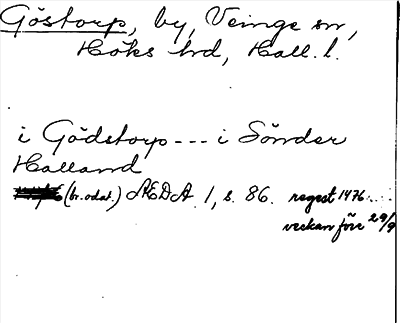 Göstorp, by, Veinge sn,
Höks hd, Hall. l.
i Gödstorp --- i Sönder
Halland
(br. odat.) ÆDA 1, s. 86. regest 1476
veckan före 29/9